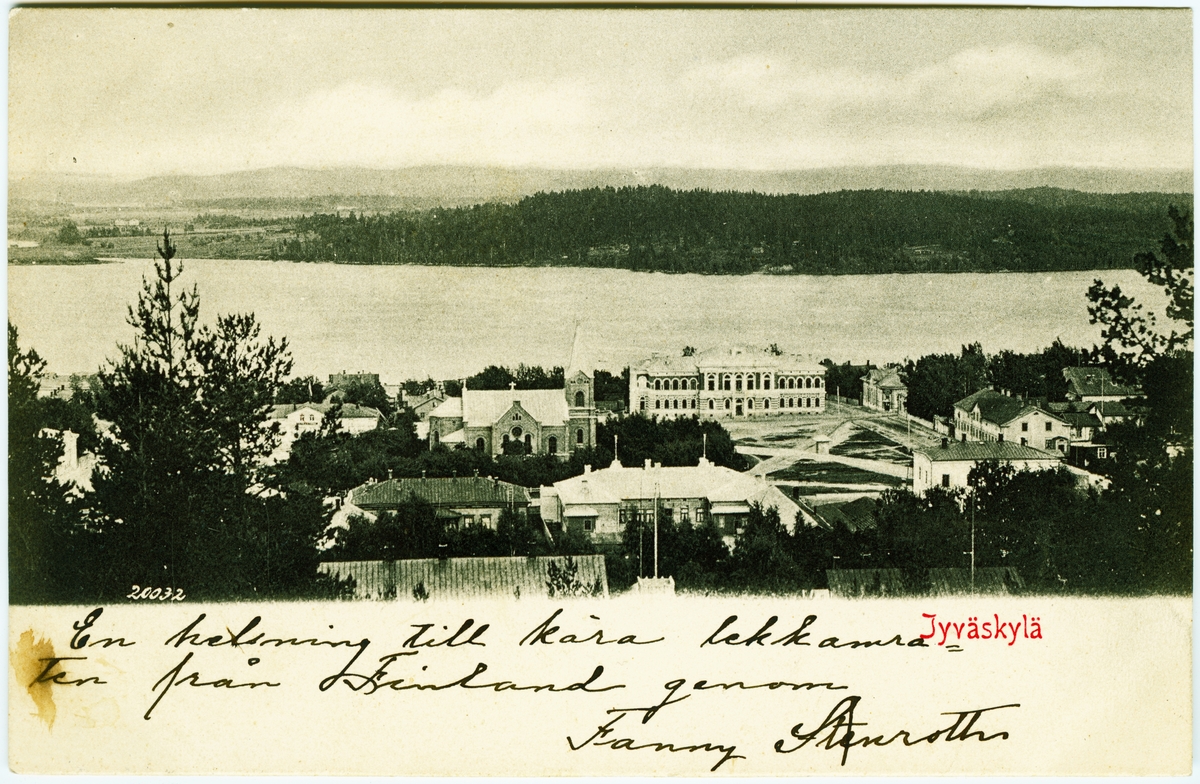 20032
Jyväskylä
En helsning till kära lekkamra=
ten från Finland genom
Fanny Stenroth